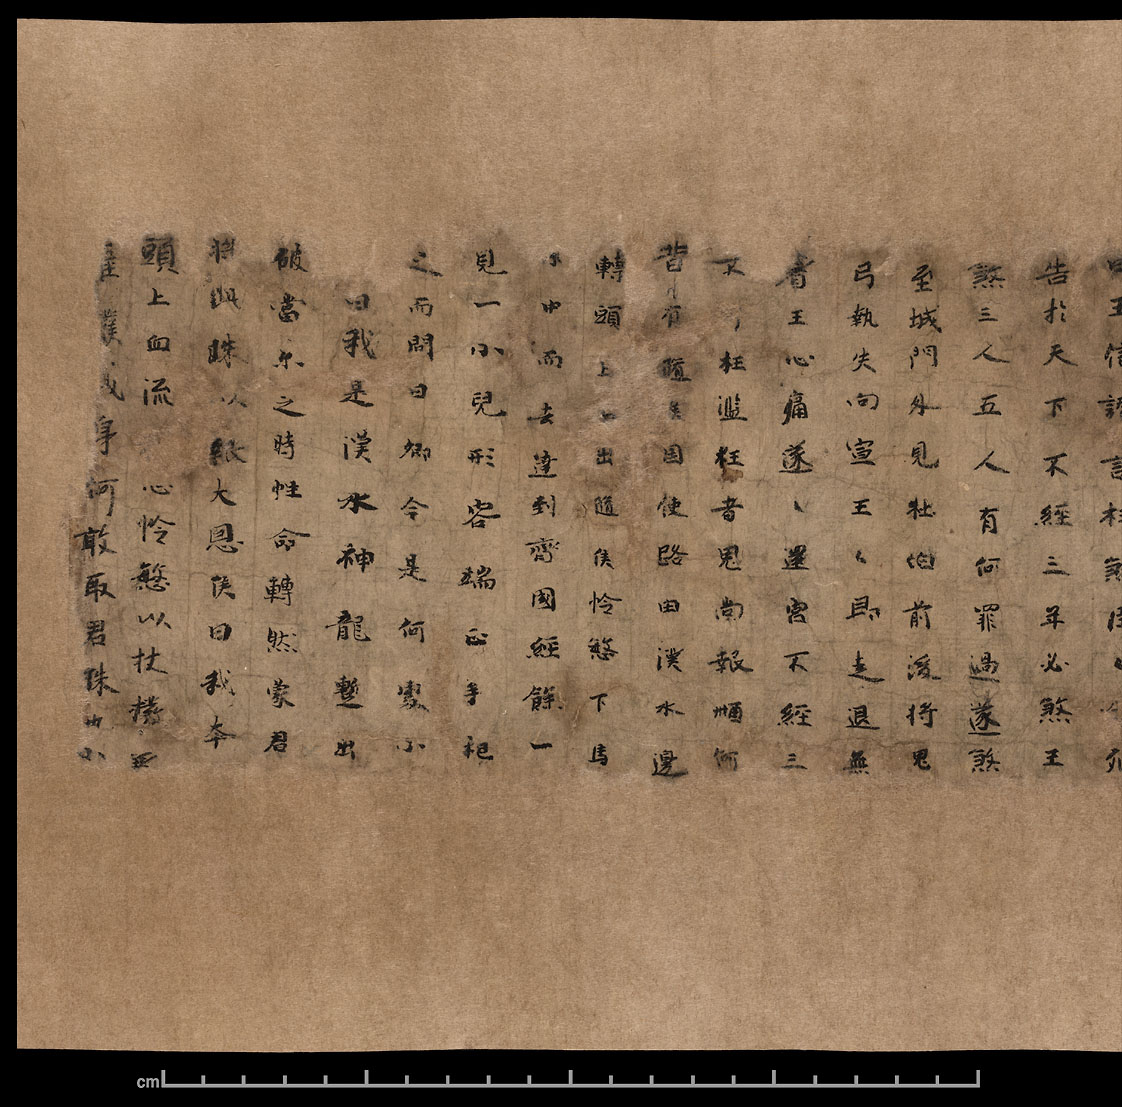 王信讒言枉煞
告於天下不經三年必煞王
煞三人五人有何罪過遂煞
至城門外見杜伯前後將鬼
弓執矢向宣王〻即走退無
看王心痛遂〻還宮不經三
可枉濫枉者鬼尚報何
昔有隨侯國使路由漢水邊
轉頭上血出隨侯怜愍下馬
水中而去達到齊國經餘一
見一小兒形容端正手把
之而問曰卿今是何處小
曰我是漢水神龍蹔出
破當尓之時性命轉然蒙君
將此珠以大恩侯曰我本
頭上血流心怜愍以杖撥
身何敢取君珠也小